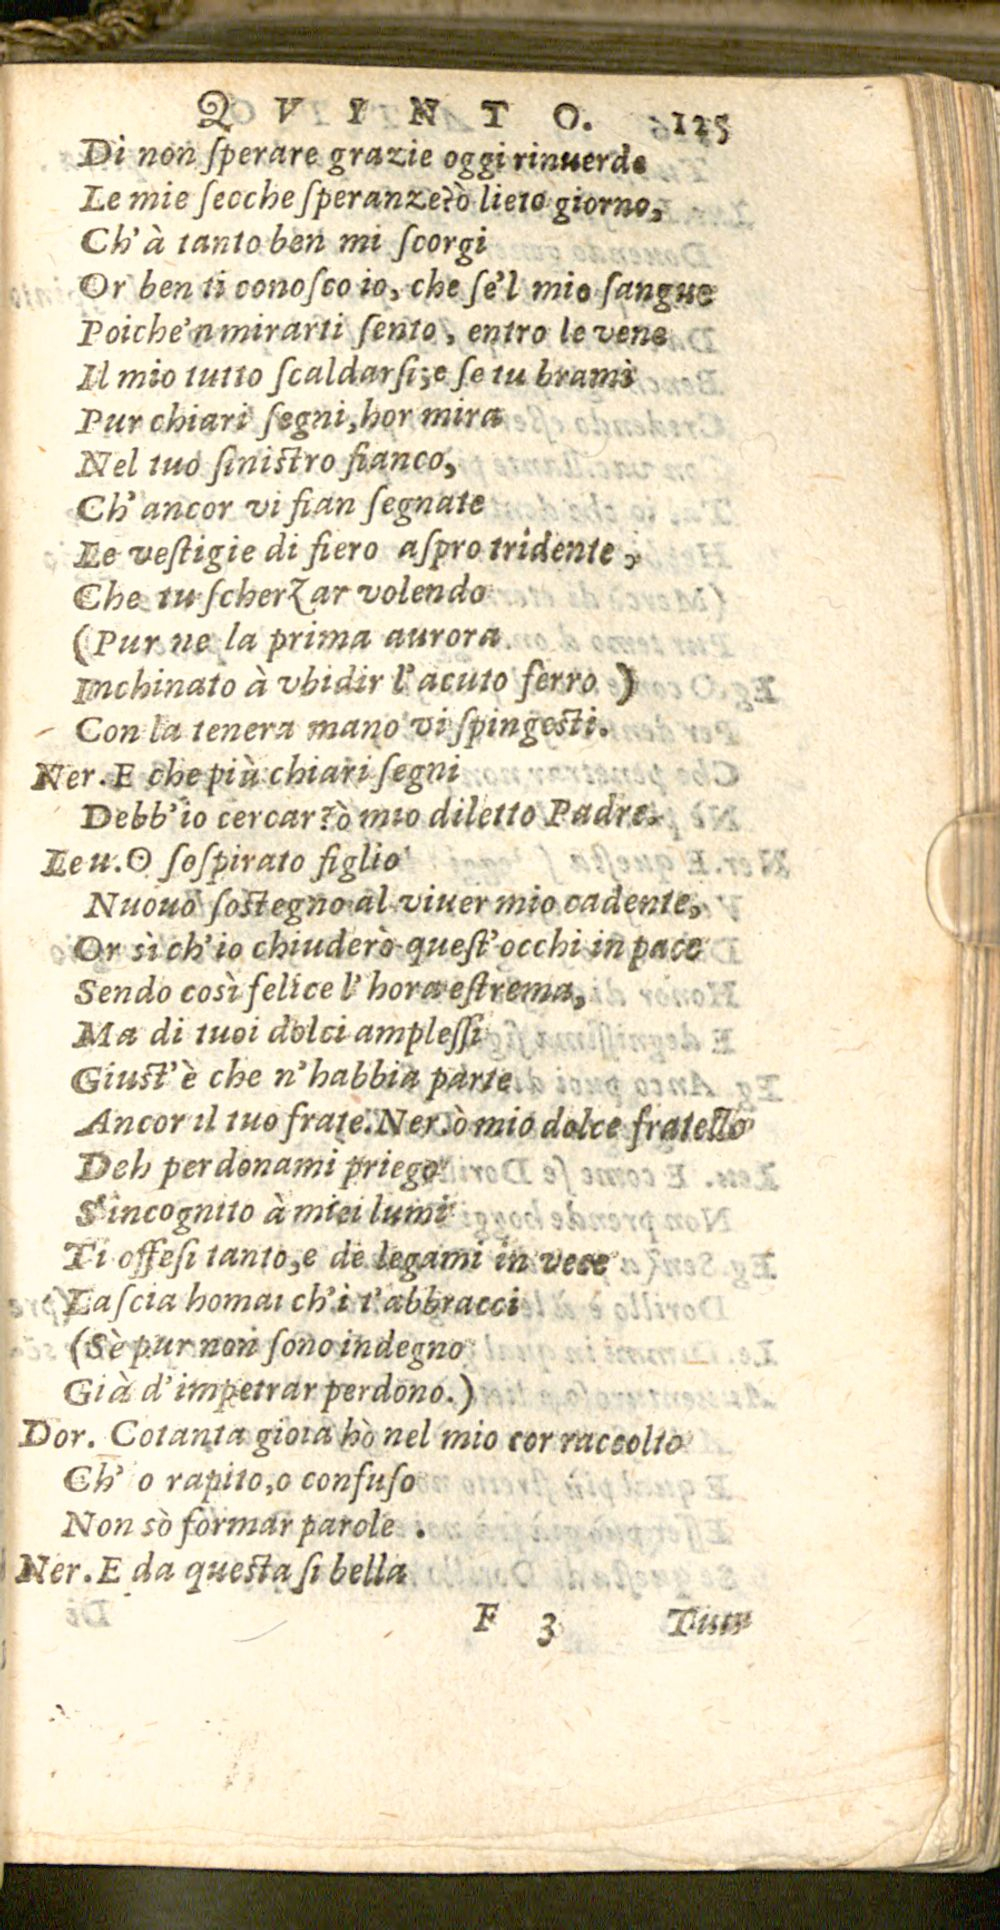 QVINTO. 125
Di non ſperare grazie oggi rinuerde
Le mie ſecche ſperanze? ò lieto giorno,
Ch'à tanto ben mi ſcorgi
Or ben ti conoſco io, che ſe'l mio ſangue
Poiche'n mirarti ſento, entro le vene
Il mio tutto ſcaldarſi; e ſe tu brami
Pur chiari ſegni, hor mira
Nel tuo ſiniſtro fianco,
Ch'ancor vi fian ſegnate
Le veſtigie di fiero aſpro tridente,
Che tu ſcherzar volendo
(Pur ne la prima aurora
Inchinato à vbidir l'acuto ferro)
Con la tenera mano vi ſpingeſti.
Ner. E che più chiari ſegni
Debb'io cercar? ò mio diletto Padre.
Leu. O ſoſpirato figlio
Nuouo ſoſtegno al viuer mio cadente,
Or sì ch'io chiuderò queſt'occhi in pace
Sendo così felice l'hora eſtrema,
Ma di tuoi dolci ampleſſi
Giuſt'è che n'habbia parte
Ancor il tuo frate. Ner. ò mio dolce fratello
Deh perdonami priego
S'incognito à miei lumi
Ti offeſi tanto, e de legami in vece
Laſcia homai ch'i t'abbracci
(Sè pur non ſono indegno
Già d'impetrar perdono.)
Dor. Cotanta gioia hò nel mio cor raccolto
Ch' o rapito, o confuſo
Non sò formar parole.
Ner. E da queſta ſi bella
F 3